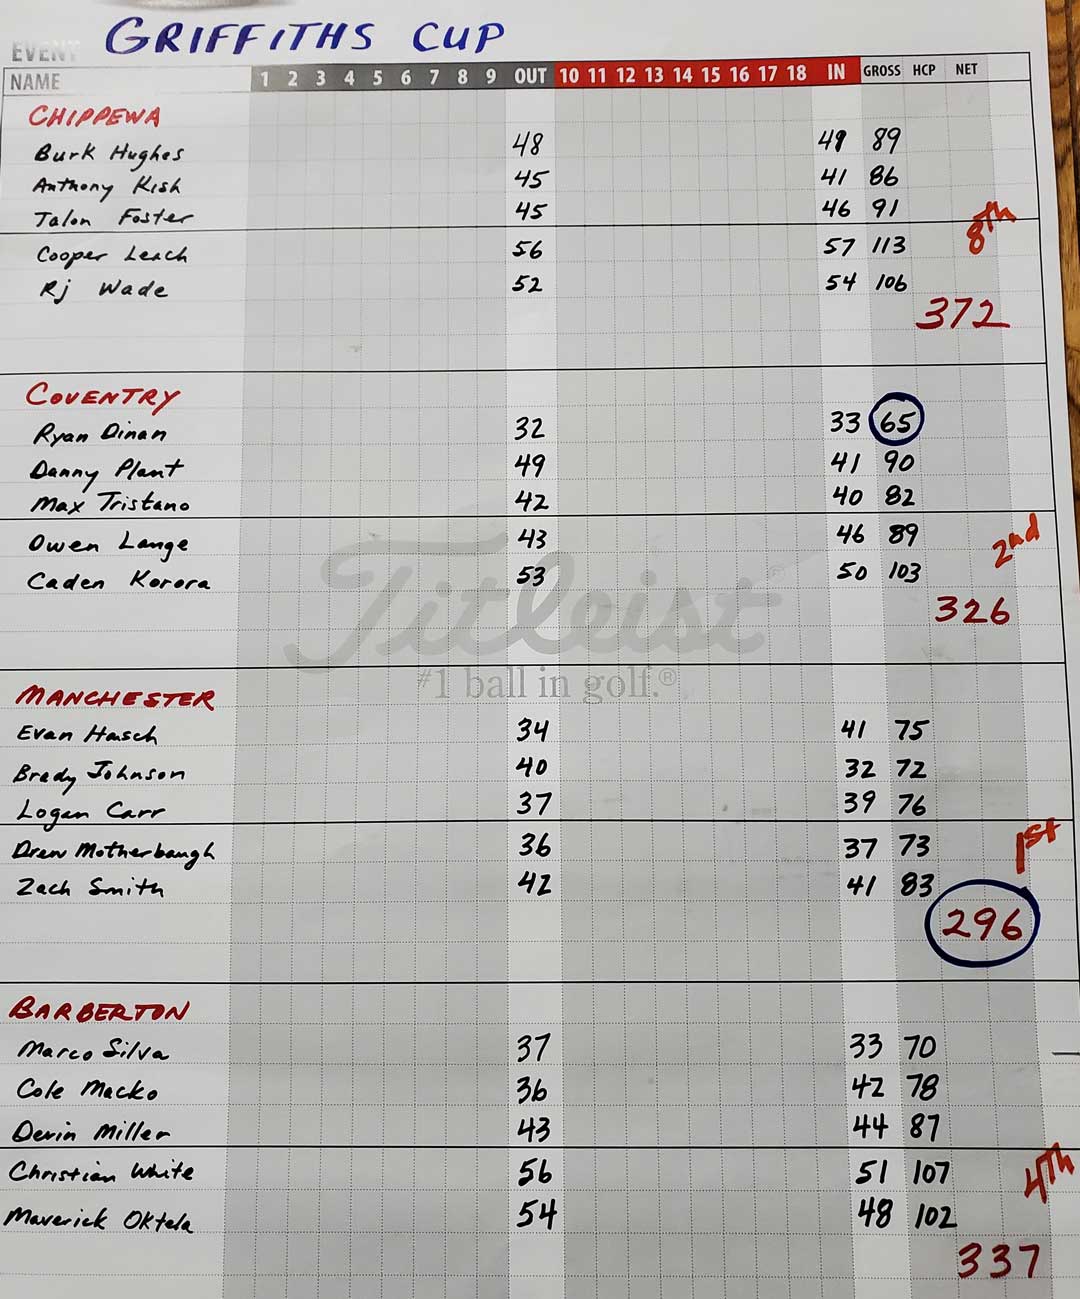 EVENT GRIFFITHS CUP
NAME 1 2 3 4 5 6 7 8 9 OUT 10 11 12 13 14 15 16 17 18 IN GROSS HCP NET
CHIPPEWA
Burk Hughes 48 41 89
Anthony Kish 45 41 86
Talon Foster 45 46 91
8th
Cooper Leach 56 57 113
Rj Wade 52 54 106
372
COVENTRY
Ryan Dinan 32 33 65
Danny Plant 49 41 90
Max Tristano 42 40 82
Owen Lange 43 46 89
2nd
Caden Korora 53 50 103
326
Titleist
#1 ball in golf.®
MANCHESTER
Evan Hasch 34 41 75
Brady Johnson 40 32 72
Logan Carr 37 39 76
Drew Motherbaugh 36 37 73
1st
Zach Smith 42 41 83
296
BARBERTON
Marco Silva 37 33 70
Cole Macko 36 42 78
Devin Miller 43 44 87
Christian White 56 51 107
4th
Maverick Oktela 54 48 102
337